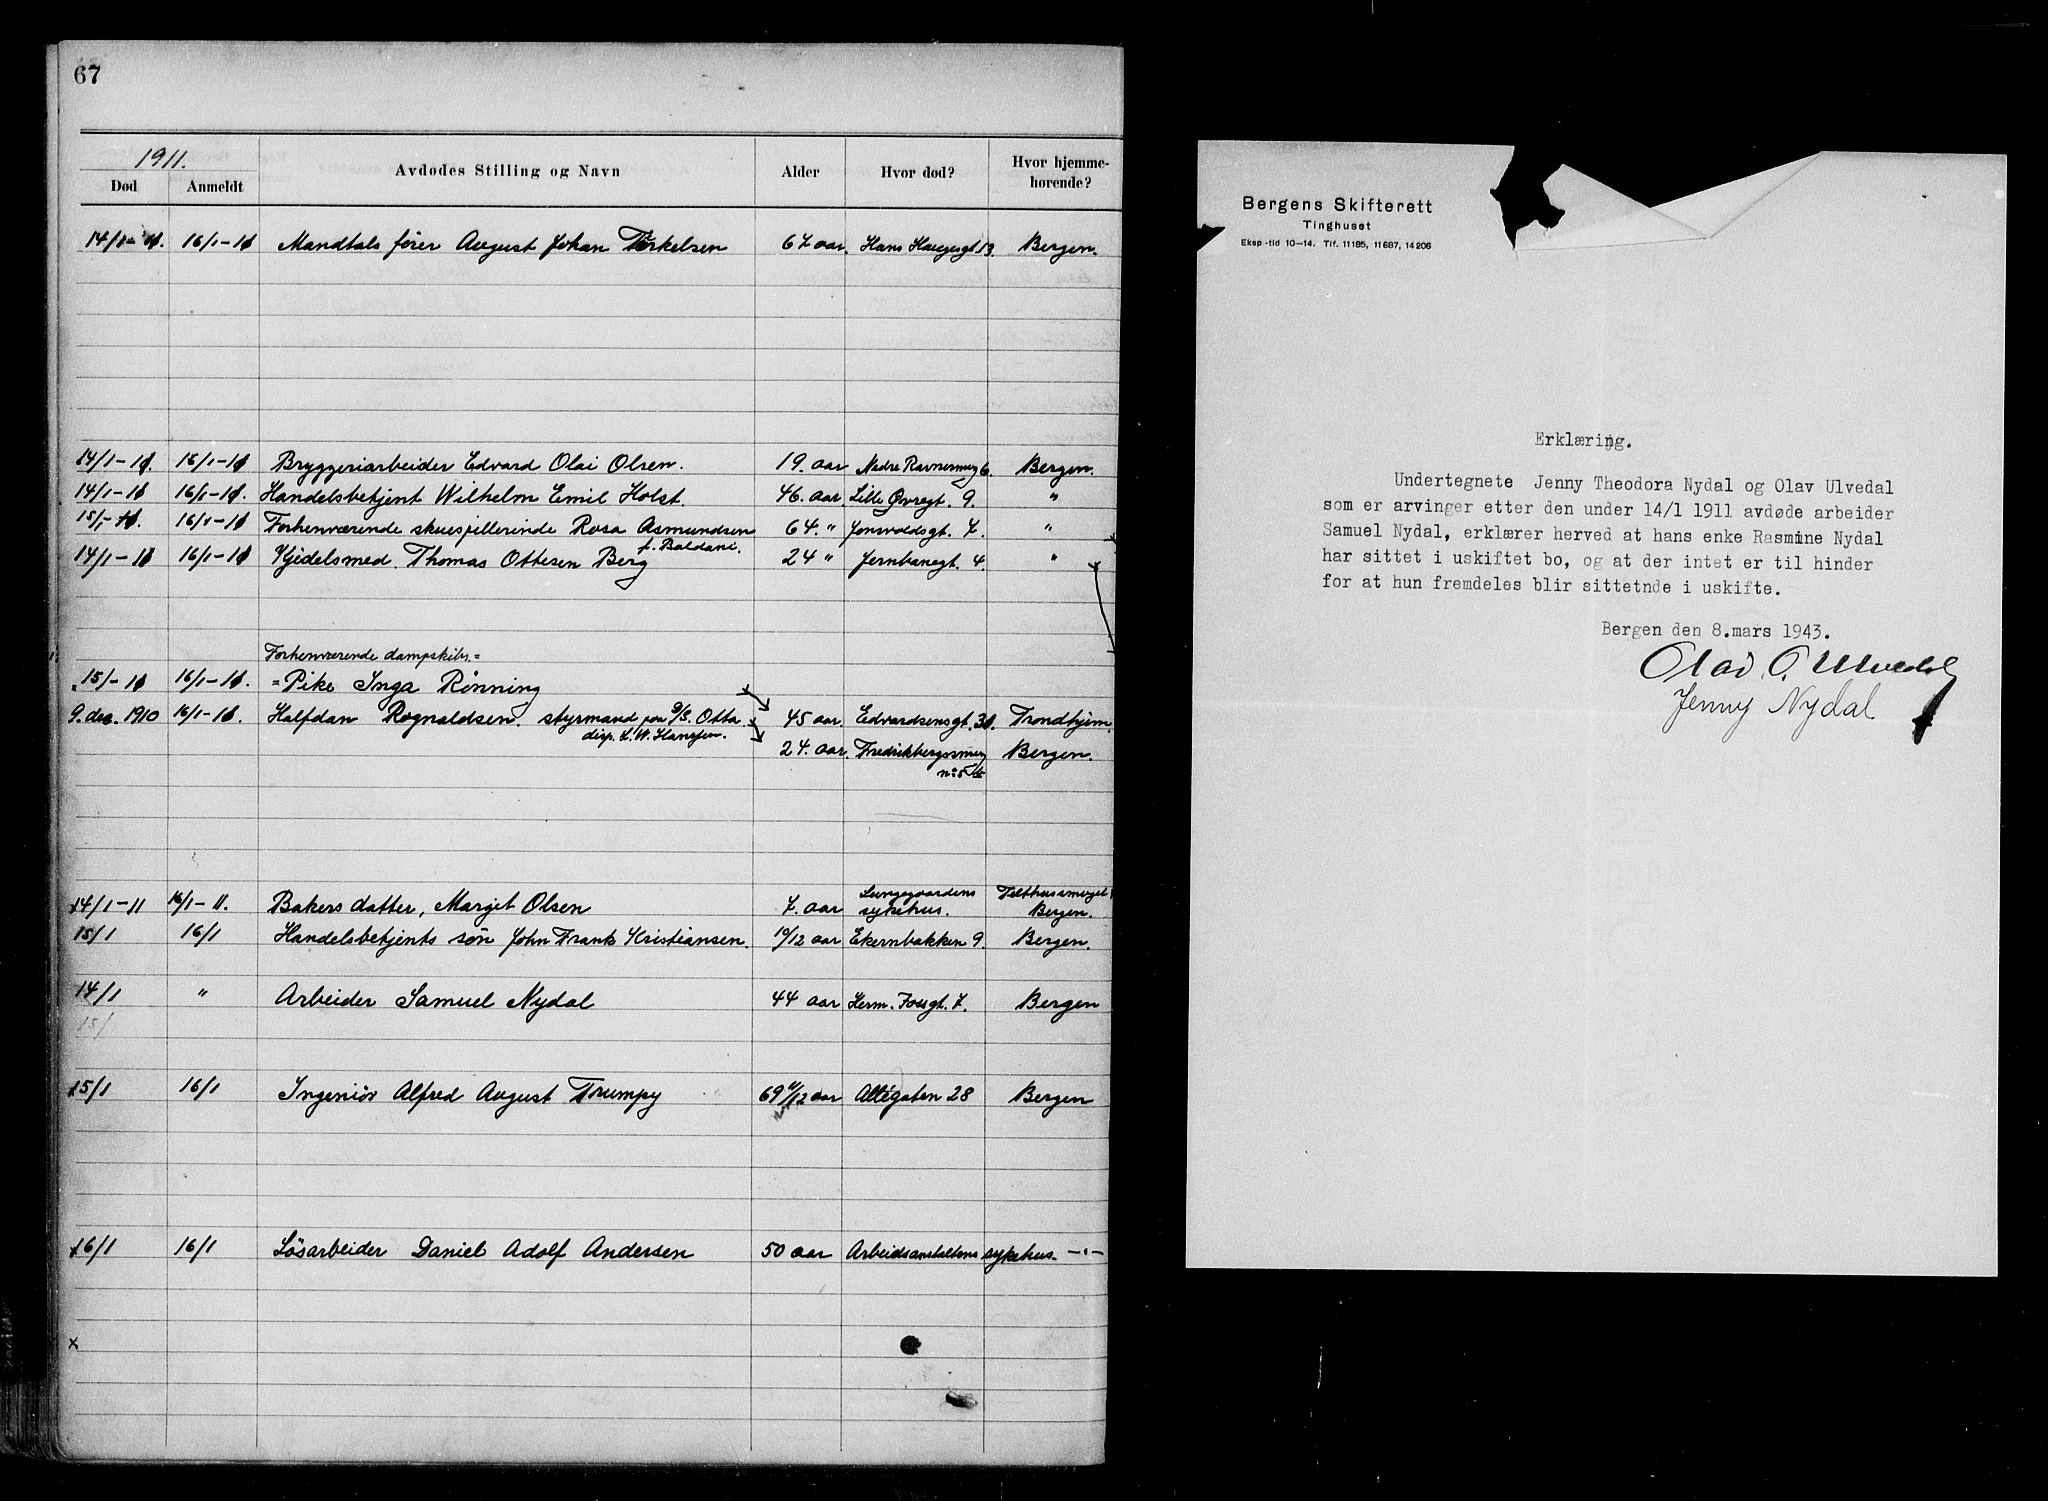 67
1911.
Død Anmeldt Avdødes Stilling og Navn Alder Hvor død? Hvor hjemme-
hørende?
14/1-11. 16/1-11 Mandtalsfører August Johan Torkelsen 67 aar. Hans Haugesgt 13. Bergen.
14/1-11. 16/1-11 Bryggeriarbeider Edvard Olai Olsen. 19. aar Nedre 6. Bergen.
14/1-11 16/1-11. Handelsbetjent Wilhelm Emil Holst. 46. aar. Lille Øvregt. 9. "
15/1-11. 16/1-11 Forhenværende skuespillerinde Rosa Asmundsen 64. " Jonsvoldsgt. 7. "
f. Baldani.
14/1-11 16/1-11 Kjedelsmed. Thomas Ottesen Berg 24 " Jernbanegt. 4. "
Forhenværende dampskibs.=
15/1-11 16/1-11. =Pike Inga Rønning
9. des. 1910 16/1-11. Halfdan Rognaldsen. styrmand paa D/S. Otta 45 aar. Edvardsensgt. 31. Trondhjem.
disp. L. W. Hansen. 24. aar. Fredriksbergssmug Bergen.
no 5
14/1-11 16/1-11. Bakers datter, Margit Olsen 7. aar Lungegaardens
sykehus. Telthussmuget
Bergen.
15/1 16/1 Handelsbetjents søn John Frank Kristiansen. 10/12 aar Ekernbakken 9. Bergen.
14/1 " Arbeider Samuel Nydal 44 aar Herm. Fossgt. 7. Bergen
15/
15/1 16/1 Ingeniør Alfred August Trumpy 69 /12 aar Allégaten 28 Bergen
16/1 16/1 Løsarbeider Daniel Adolf Andersen 50 aar Arbeidsanstaltens sykehus. -"-
x
Bergens Skifterett
Tinghuset
Eksp-tid 10-14. Tlf. 11185, 11687, 14206
Erklæring.
Undertegnete Jenny Theodora Nydal og Olav Ulvedal
som er arvinger etter den under 14/1 1911 avdøde arbeider
Samuel Nydal, erklærer herved at hans enke Rasmine Nydal
har sittet i uskiftet bo, og at der intet er til hinder
for at hun fremdeles blir sittetnde i uskifte.
Bergen den 8.mars 1943.
Olav O. Ulvedal
Jenny Nydal